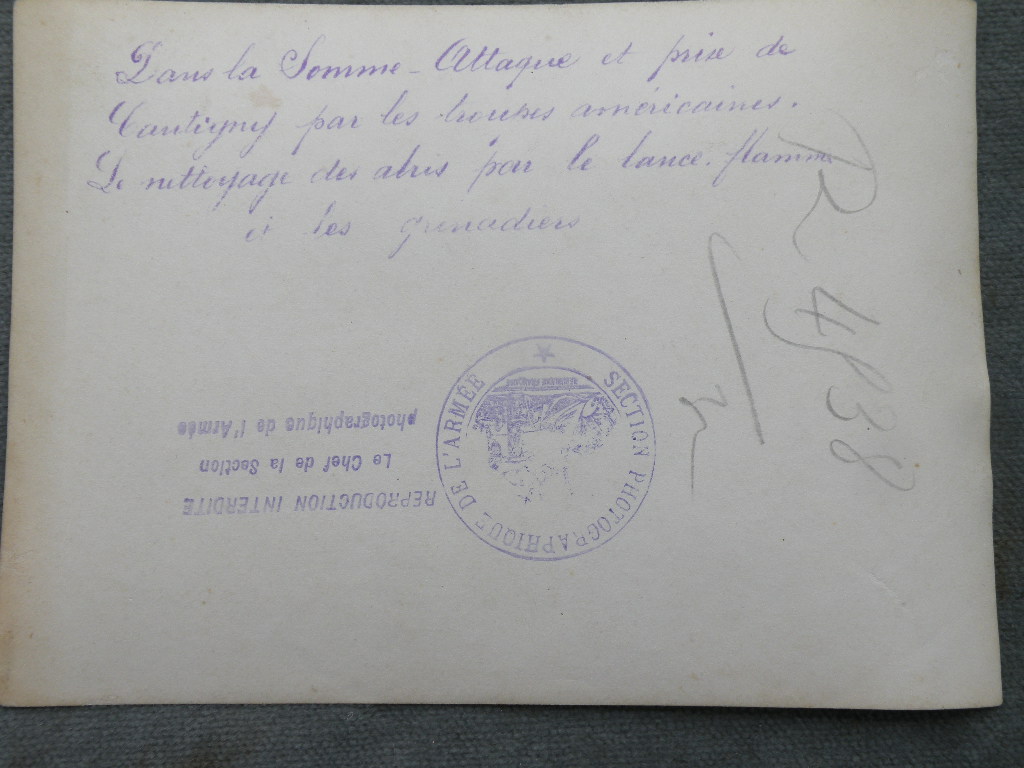 Dans la Somme - Attaque et prise de
Cantigny par les troupes américaines.
Le nettoyage des abris par le lance-flamme
et les grenadiers
R 4538
SECTION PHOTOGRAPHIQUE DE L'ARMÉE
REPUBLIQUE FRANÇAISE
REPRODUCTION INTERDITE
Le Chef de la Section
photographique de l'Armée